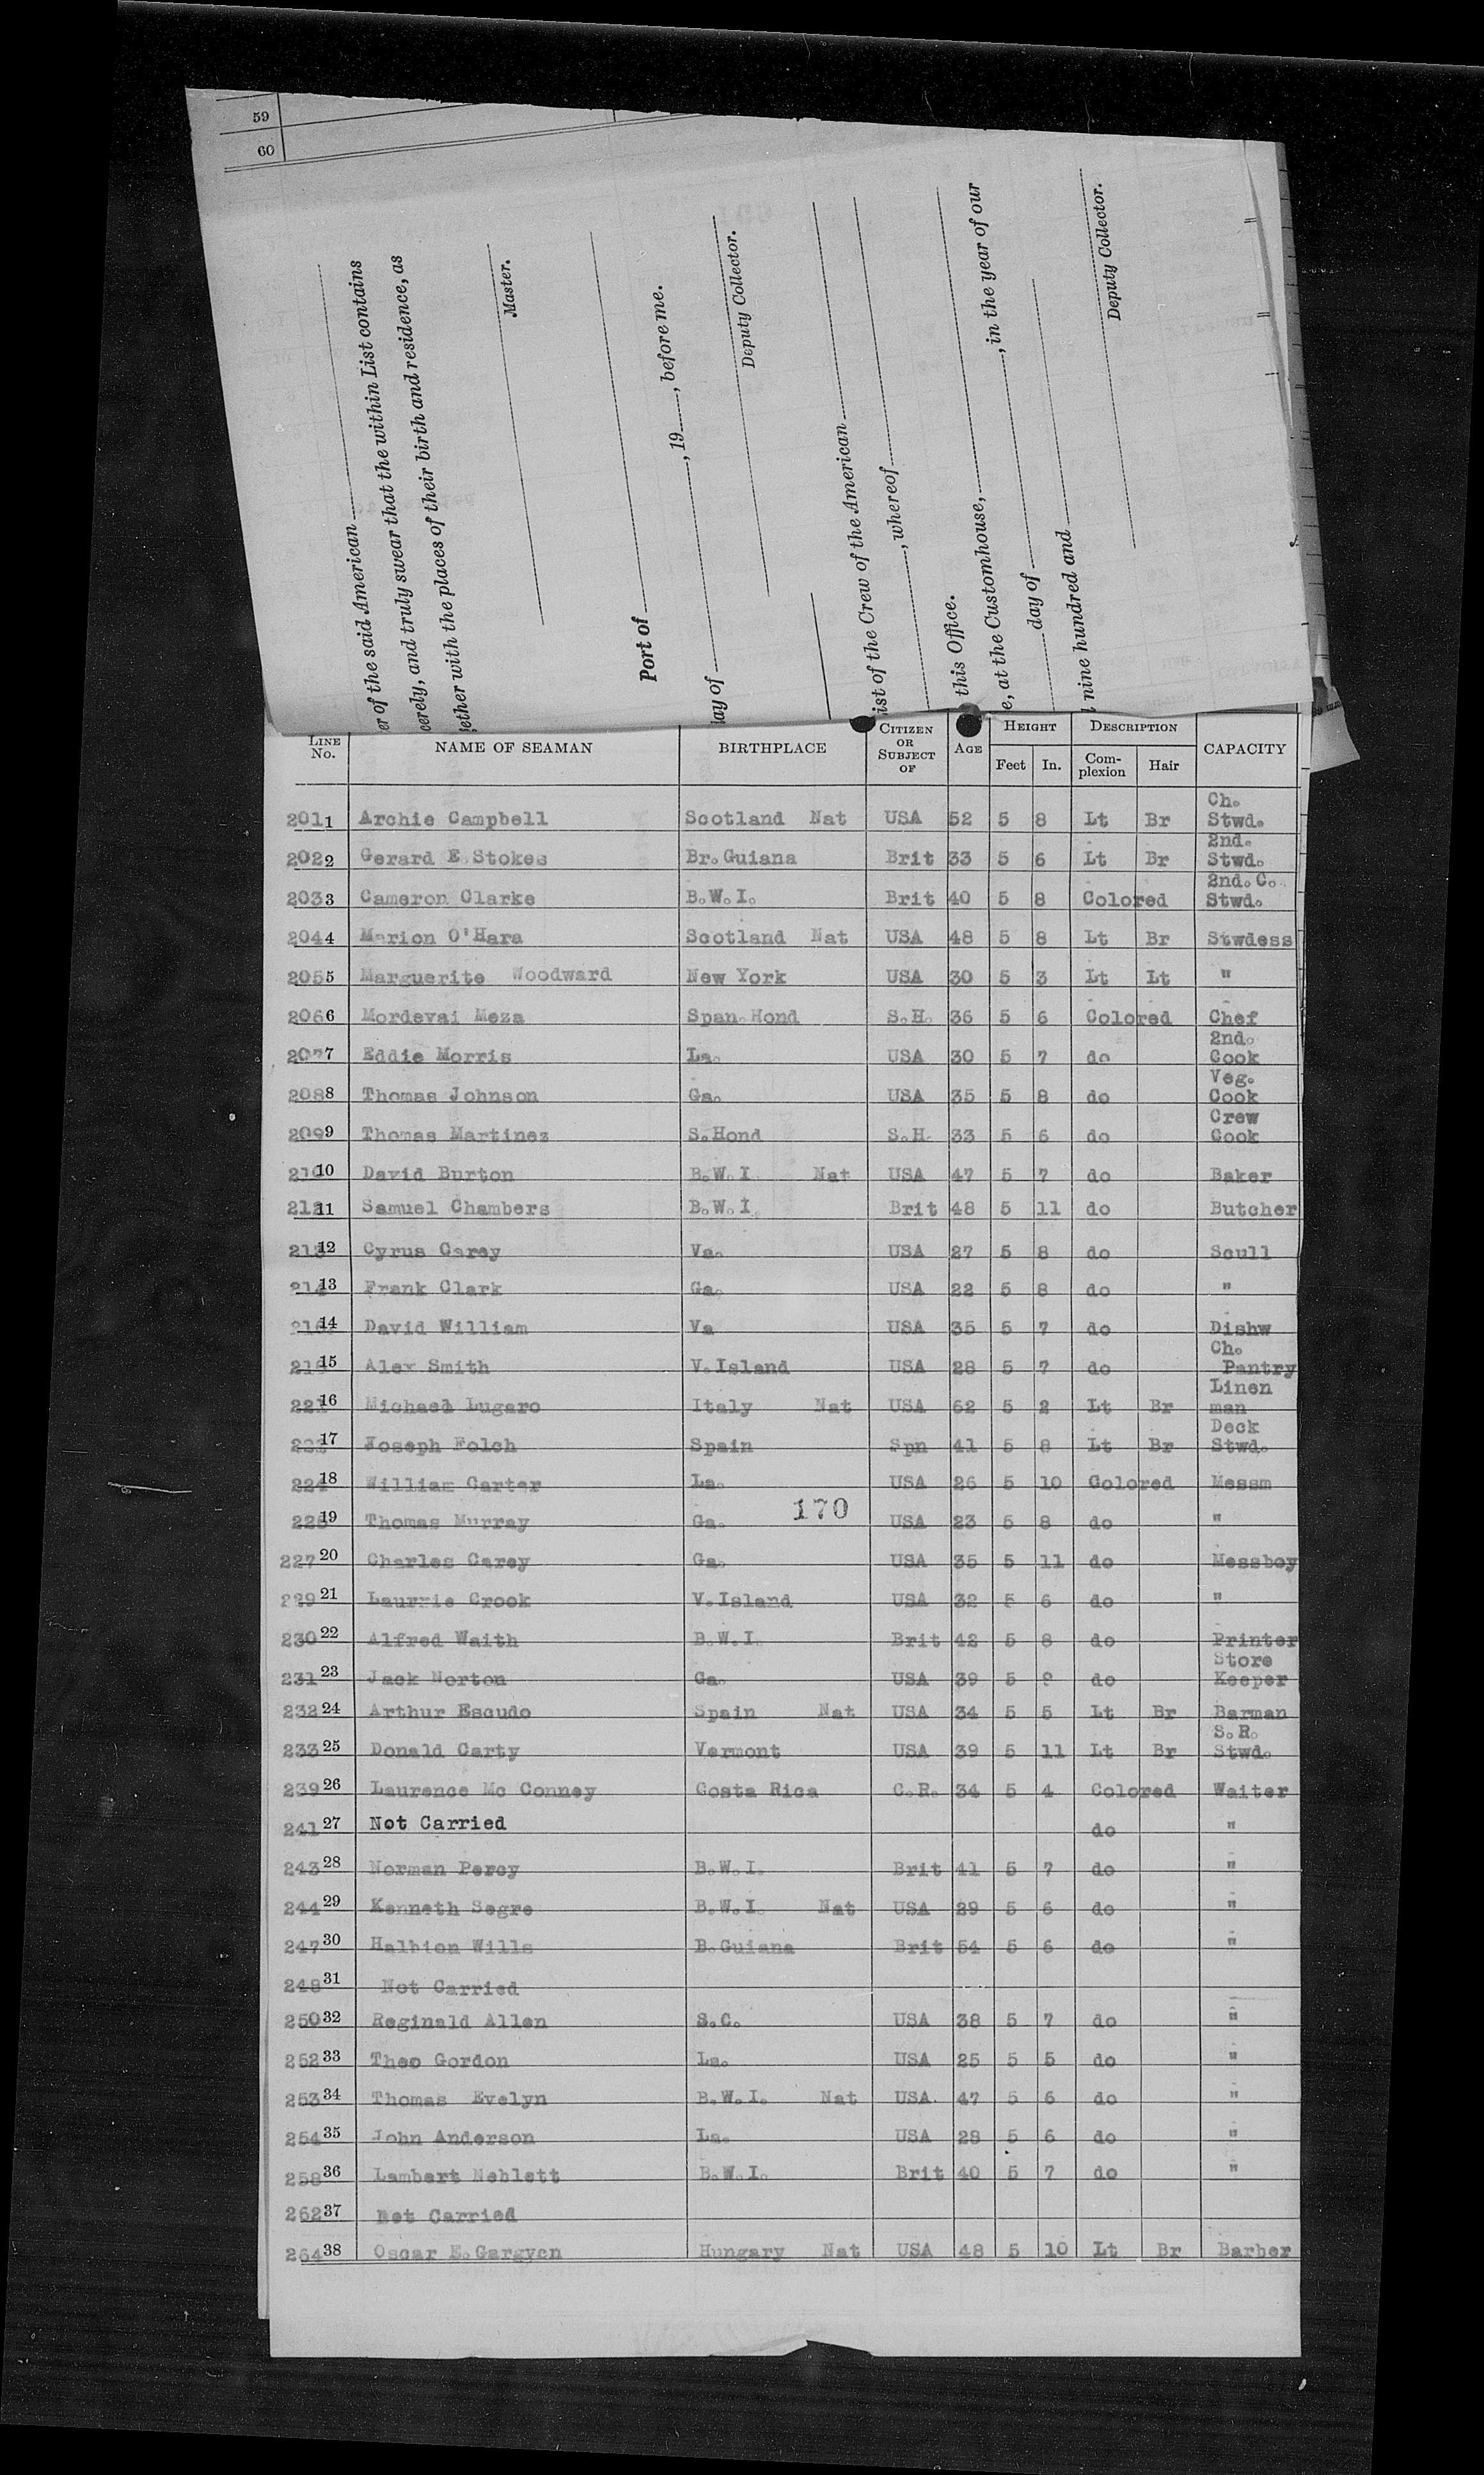 59
60
er of the said American
cerely, and truly swear that the within List contains
gether with the places of their birth and residence, as
Master.
Port of
day of , 19 , before me.
Deputy Collector.
ist of the Crew of the American
, whereof
this Office.
e, at the Customhouse, , in the year of our
day of
nine hundred and
Deputy Collector.
LINE No. NAME OF SEAMAN BIRTHPLACE CITIZEN OR SUBJECT OF AGE HEIGHT Feet In. DESCRIPTION Com-plexion Hair CAPACITY
201 1 Archie Campbell Scotland Nat USA 52 5 8 Lt Br Ch. Stwd.
202 2 Gerard E. Stokes Br. Guiana Brit 33 5 6 Lt Br 2nd. Stwd.
203 3 Cameron Clarke B.W.I. Brit 40 5 8 Colored 2nd. C. Stwd.
204 4 Marion O'Hara Scotland Nat USA 48 5 8 Lt Br Stwdess
205 5 Marguerite Woodward New York USA 30 5 3 Lt Lt "
206 6 Mordevai Meza Span. Hond S.H. 36 5 6 Colored Chef
207 7 Eddie Morris La. USA 30 5 7 do 2nd. Cook
208 8 Thomas Johnson Ga. USA 35 5 8 do Veg. Cook
209 9 Thomas Martinez S. Hond S.H. 33 5 6 do Crew Cook
10 David Burton B.W.I. Nat USA 47 5 7 do Baker
11 Samuel Chambers B.W.I. Brit 48 5 11 do Butcher
12 Cyrus Carey Va. USA 27 5 8 do Scull
13 Frank Clark Ga. USA 22 5 8 do "
14 David William Va USA 35 5 7 do Dishw
15 Alex Smith V. Island USA 28 5 7 do Ch. Pantry
16 Michael Lugaro Italy Nat USA 52 5 2 Lt Br Linen man
17 Joseph Folch Spain Spn 41 5 8 Lt Br Deck Stwd.
18 William Carter La. USA 26 5 10 Colored Messm
170
19 Thomas Murray Ga. USA 23 5 8 do "
227 20 Charles Carey Ga. USA 35 5 11 do Messboy
229 21 Laurrie Crook V. Island USA 32 5 6 do "
230 22 Alfred Waith B.W.I. Brit 42 5 8 do Printer
231 23 Jack Norton Ga. USA 39 5 do Store Keeper
232 24 Arthur Escudo Spain Nat USA 34 5 5 Lt Br Barman
233 25 Donald Carty Vermont USA 39 5 11 Lt Br S.R. Stwd.
239 26 Laurence Mc Conney Costa Rica C.R. 34 5 4 Colored Waiter
241 27 Not Carried do "
243 28 Norman Percy B.W.I. Brit 41 5 7 do "
244 29 Kenneth Segre B.W.I. Nat USA 29 5 6 do "
247 30 Halbion Wills B. Guiana Brit 54 5 6 do "
248 31 Not Carried
250 32 Reginald Allen S.C. USA 38 5 7 do "
252 33 Theo Gordon La. USA 25 5 5 do "
253 34 Thomas Evelyn B.W.I. Nat USA. 47 5 6 do "
254 35 John Anderson La. USA 28 5 6 do "
258 36 Lambert Neblett B.W.I. Brit 40 5 7 do "
262 37 Not Carried
264 38 Oscar E. Gargyen Hungary Nat USA 48 5 10 Lt Br Barber